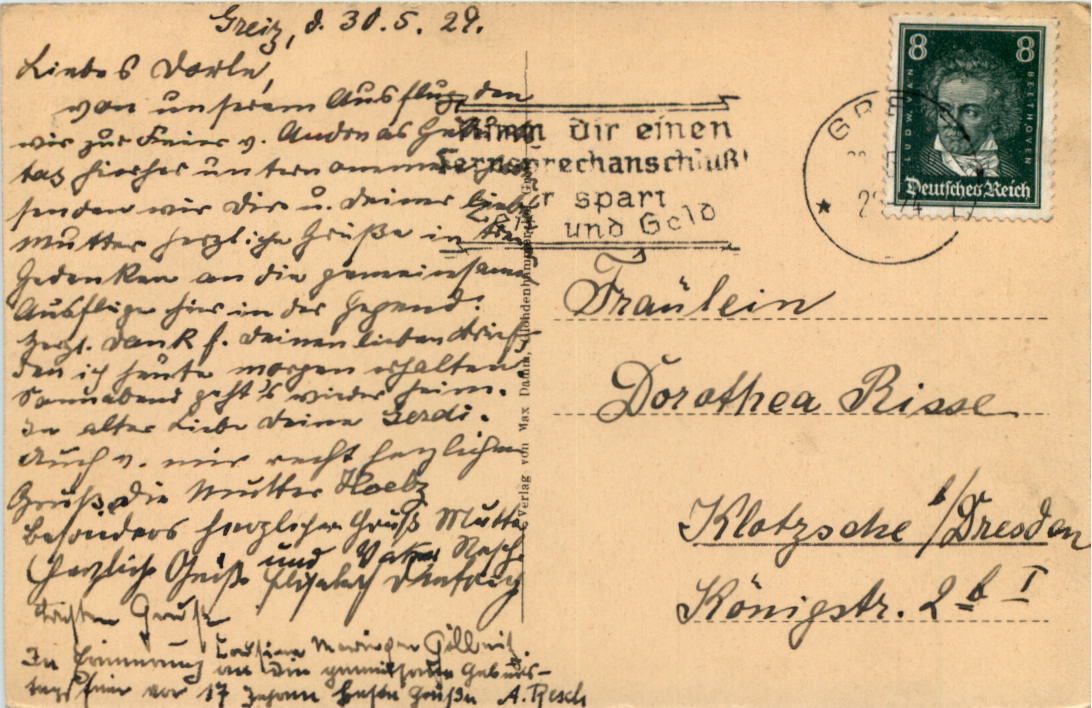 Greiz, d. 30. 5. 29.
Liebes Dorle,
von unserem Ausflug, den
wir zur Feier v. Andreas Geburts
tag hierher unternommen,
senden wir Dir u. deiner lieben
Mutter herzliche Grüße in
Gedenken an die gemeinsamen
Ausflüge hier in der Gegend.
Herzl. Dank f. deinen lieben Brief
den ich heute morgen erhalten.
Sonnabend geht's wieder heim.
In alter Liebe deine Gerdi.
Auch v. mir recht herzlichen
Gruß. die Mutter
Besonders herzlichen Gruß Mutter
und Vater Resch
Herzliche Grüße Elisabeth
Gruß
In Erinnerung an die gemeinsame Geburts-
tagsfeier vor 17 Jahren beste Grüße A. Resch
Verlag von Max Damm,
Nimm dir einen
Fernsprechanschluß!
r spart
und Geld
8 8
LUDW. VAN BEETHOVEN
Deutsches Reich
Fräulein
Dorothea Risse
Klotzsche b/Dresden
Königstr. 2 b I